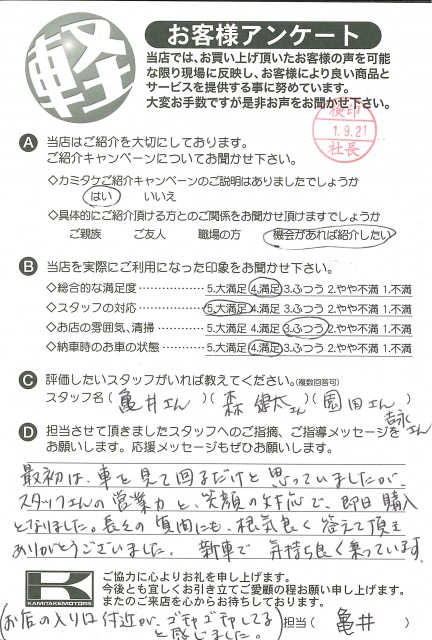 軽
お客様アンケート
当店では、お買い上げ頂いたお客様の声を可能
な限り現場に反映し、お客様により良い商品と
サービスを提供する事に努めています。
大変お手数ですが是非お声をお聞かせ下さい。
検印
1.9.21
社長
A 当店はご紹介を大切にしております。
ご紹介キャンペーンについてお聞かせ下さい。
◇カミタケご紹介キャンペーンのご説明はありましたでしょうか
はい いいえ
◇具体的にご紹介頂ける方とのご関係をお聞かせ頂けますでしょうか
ご親族 ご友人 職場の方 機会があれば紹介したい
B 当店を実際にご利用になった印象をお聞かせ下さい。
◇総合的な満足度 5.大満足 4.満足 3.ふつう 2.やや不満 1.不満
◇スタッフの対応 5.大満足 4.満足 3.ふつう 2.やや不満 1.不満
◇お店の雰囲気、清掃 5.大満足 4.満足 3.ふつう 2.やや不満 1.不満
◇納車時のお車の状態 5.大満足 4.満足 3.ふつう 2.やや不満 1.不満
C 評価したいスタッフがいれば教えてください。(複数回答可)
スタッフ名(亀井さん)(森 健太さん)(園田さん)
吉永さん
D 担当させて頂きましたスタッフへのご指摘、ご指導メッセージを
お願いします。応援メッセージもぜひお願いします。
最初は、車を見て回るだけと思っていましたが、
スタッフさんの営業力と、笑顔の対応で、即日購入
となりました。長々の質問にも、根気良く答えて頂き
ありがとうございました。 新車で気持ち良く乗っています。
K
KAMITAKEMOTORS
ご協力に心よりお礼を申し上げます。
今後とも宜しくお引き立てご愛顧の程お願い申し上げます。
またのご来店を心からお待ちしております。
担当(亀井)
(お店の入り口付近が、ごちゃごちゃしてる
と感じました。)